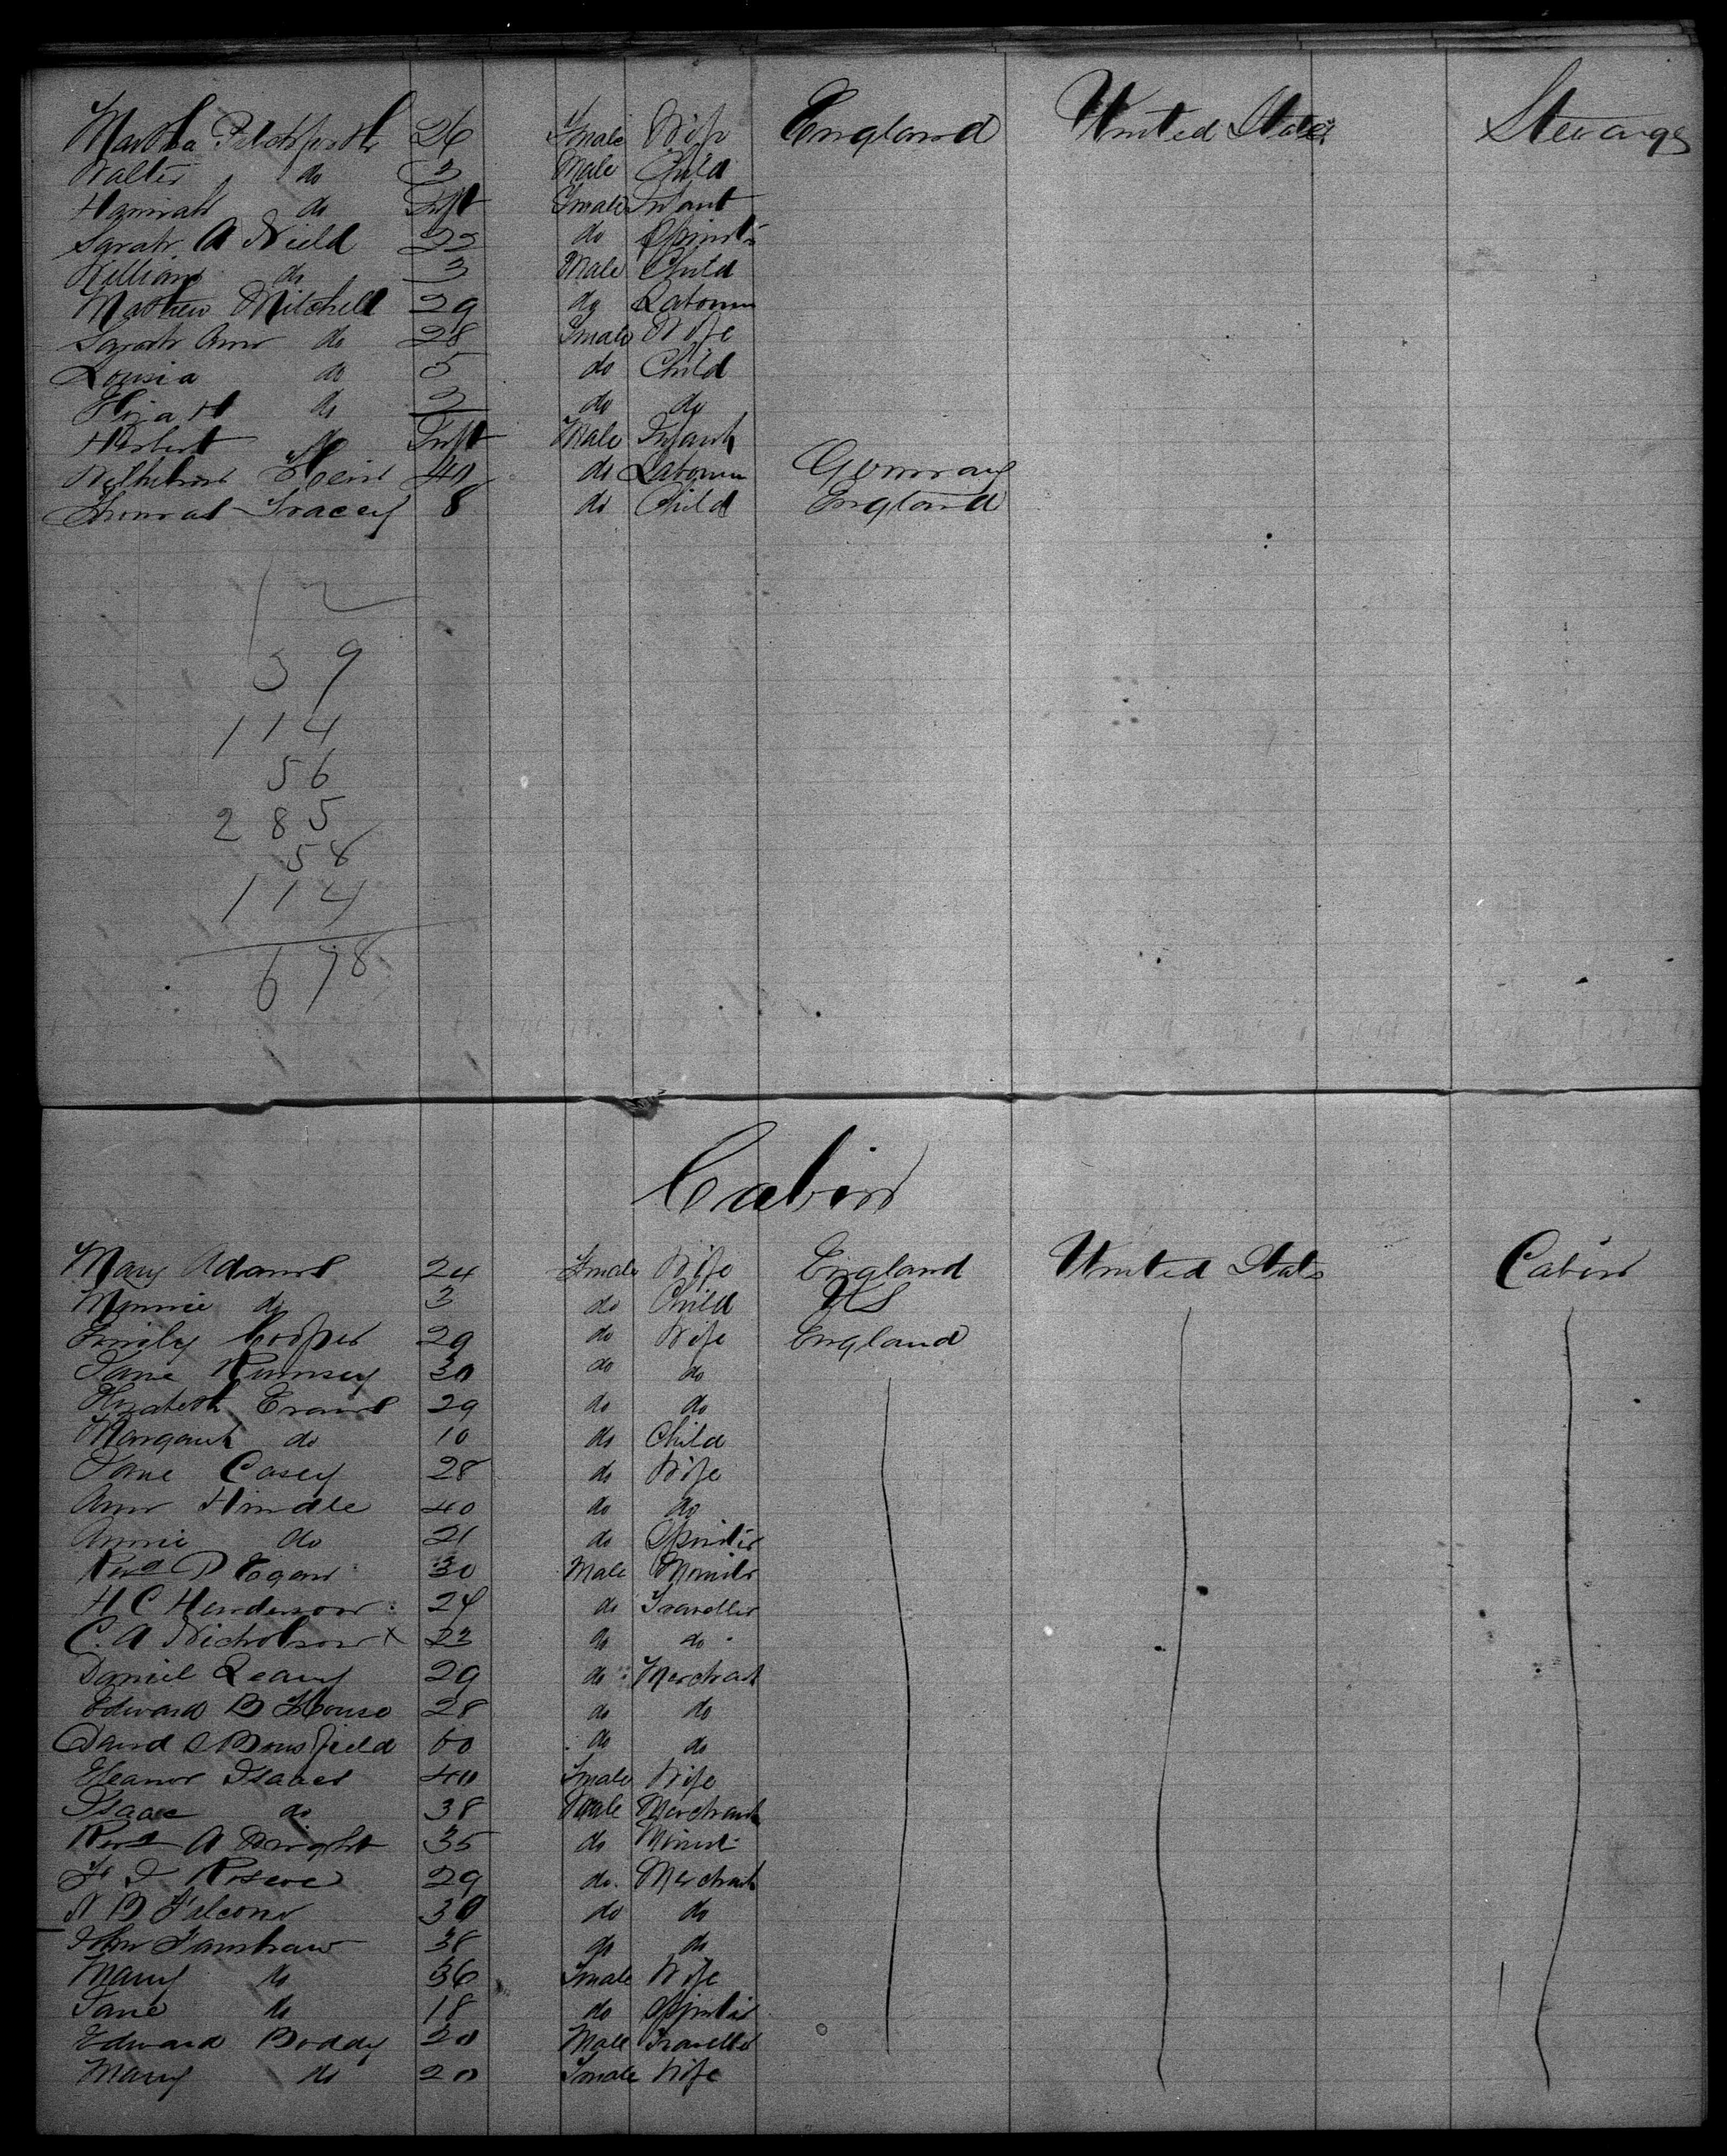 Martha 26 Female Wife England United States Steerage
Walter do 3 Male Child
Hannah do Inft Female Infant
Sarah A Nield 22 do Spinstr
William do 3 Male Child
Mathew Mitchell 29 do Labourer
Sarah Ann do 28 Female Wife
Lousia do 5 do Child
Eliza H do 2 do do
Herbert do Inft Male Infant
40 do Labourer Germany
Thomas Tracey 8 do Child England
12
59
114
56
285
58
114
678
Cabin
Mary Adams 24 Female Wife England United States Cabin
Minnie do 3 do Child US
Emily Cooper 29 do Wife England
Jane Rumsey 30 do do
Elizabeth Evans 29 do do
Margaret do 10 do Child
Jane Casey 28 do Wife
Ann Hindle 40 do do
Annie do 21 do Spinster
Revd P Egan 30 Male Ministr
H C Henderson 24 do Traveller
C. A Nicholson x 23 do do
Daniel Leary 29 do Merchant
Edward B House 28 do do
David S Bousfield 60 do do
Eleanor Isaacs 40 Female Wife
Isaac do 38 Male Merchant
Revd A Wright 35 do Minist
F J Roscoe 29 do Merchant
N B Falconer 30 do do
John Fanshaw 38 do do
Mary do 36 Female Wife
Jane do 18 do Spinster
Edward Boddy 20 Male Traveller
Mary do 20 Female Wife